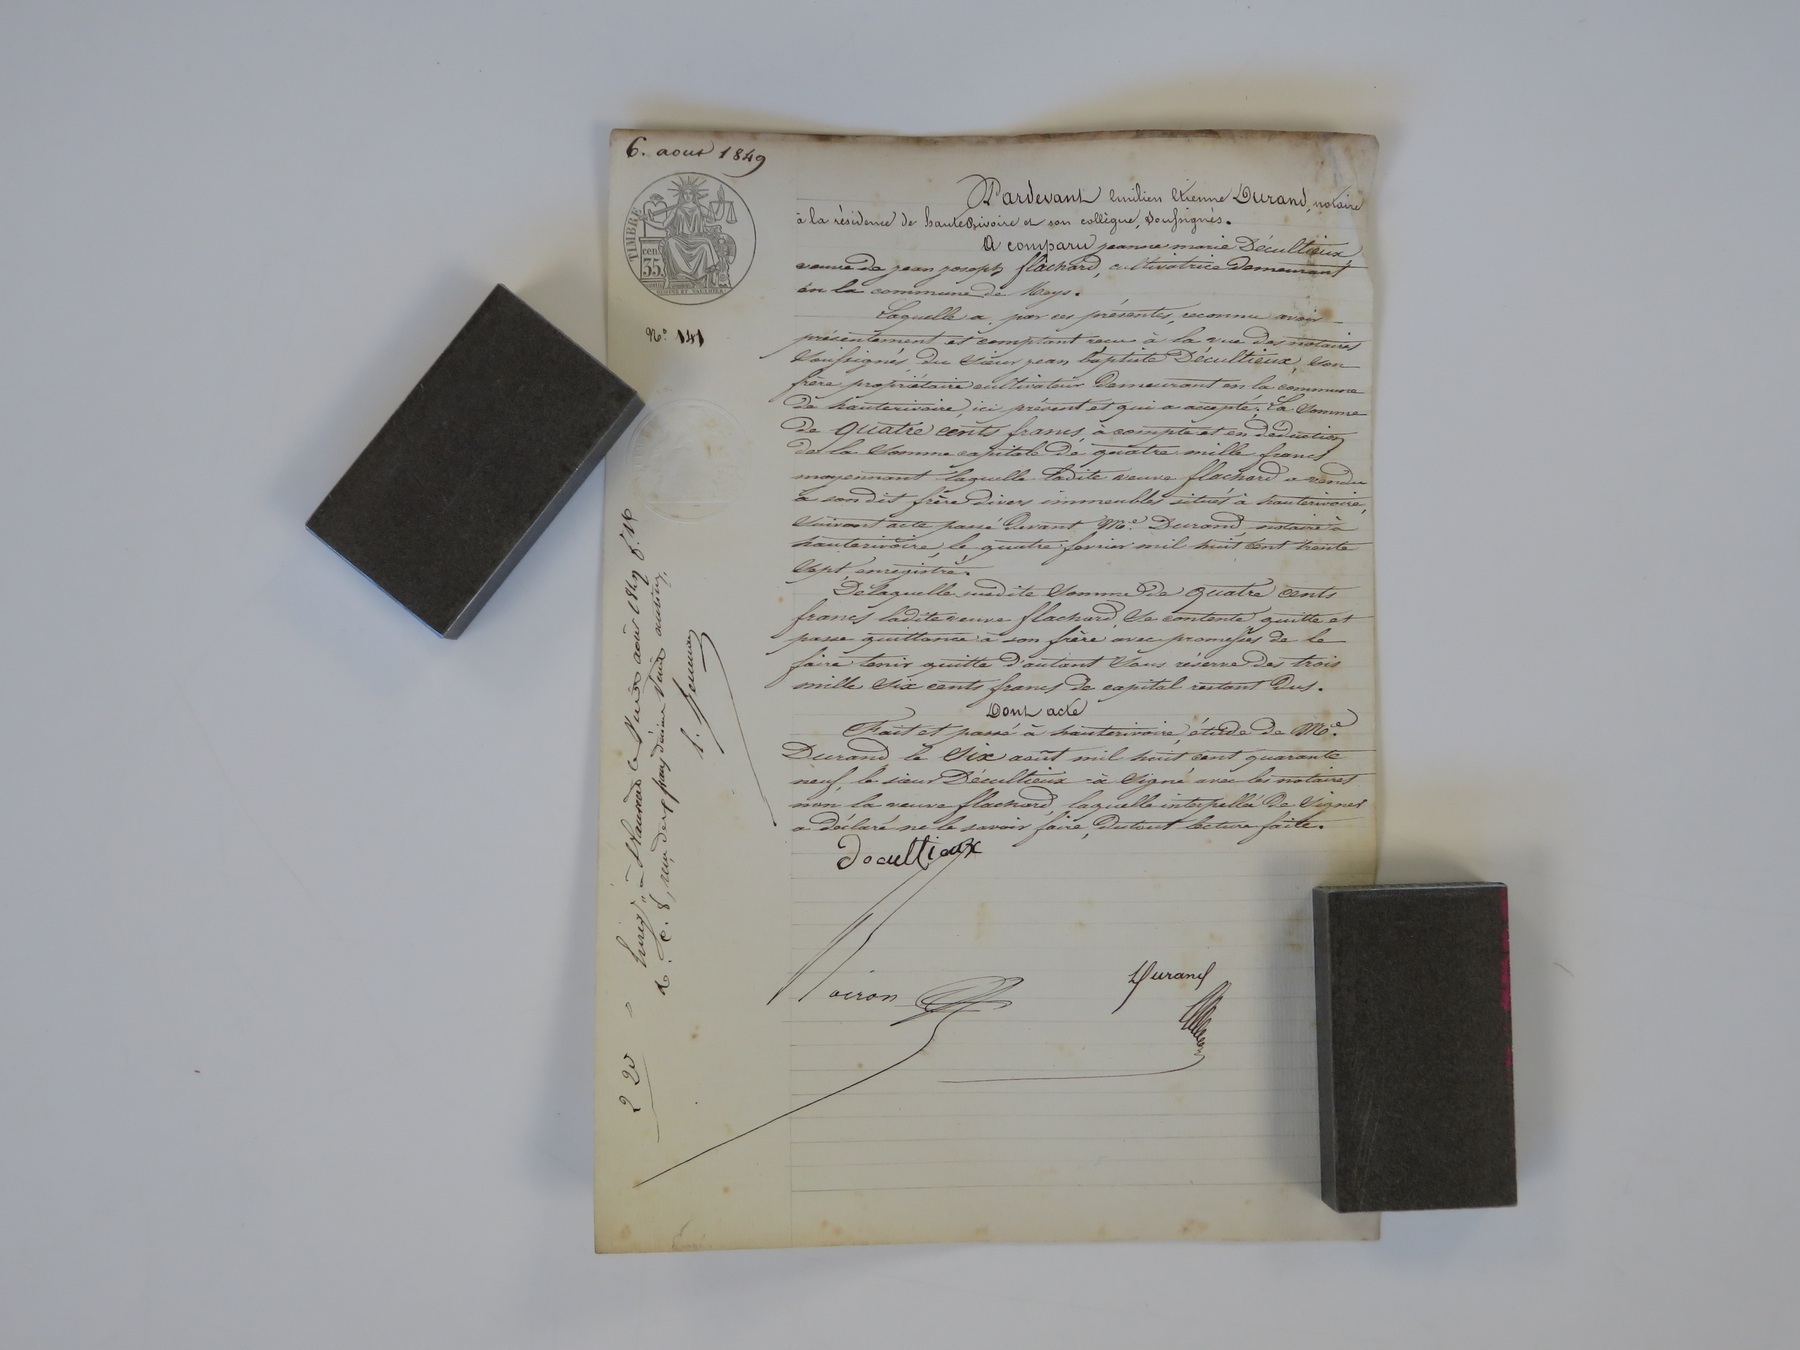 6. aout 1849
TIMBRE
cen.
35
N.° 141
Pardevant Emilien Etienne Durand, notaire
à la résidence de hauterivoire et son collègue, soussignés.
A comparu jeanne marie Décultieux
veuve de jean joseph flachard, cultivatrice demeurant
en la commune de Meys.
Laquelle a, par ces présentes, reconnu avoir
présentement et comptant reçu à la vue des notaires
soussignés, du sieur jean baptiste Décultieux, son
frère propriétaire cultivateur demeurant en la commune
de hauterivoire, ici présent et qui a accepté, La somme
de quatre cents francs, à compte et en déduction
de la somme capitale de quatre mille francs
moyennant laquelle ladite veuve flachard a vendu
à son dit frère divers immeubles situés à hauterivoire,
suivant acte passé devant M.e Durand notaire à
hauterivoire, le quatre fevrier mil huit cent trente
sept, enregistré.
De laquelle susdite somme de quatre cents
francs ladite veuve flachard, se contente quitte et
passe quittance à son frère avec promesses de le
faire tenir quitte d'autant sous réserve des trois
mille six cents francs de capital restant dus.
Dont acte
Fait et passé à hauterivoire, étude de M.e
Durand le six août mil huit cent quarante
neuf, le sieur Décultieux a signé avec les notaires
non la veuve flachard, laquelle interpellée de signer
a déclaré ne le savoir faire, du tout lecture faite.
Decultieux
Durand
août 1849 f. 18
2 20